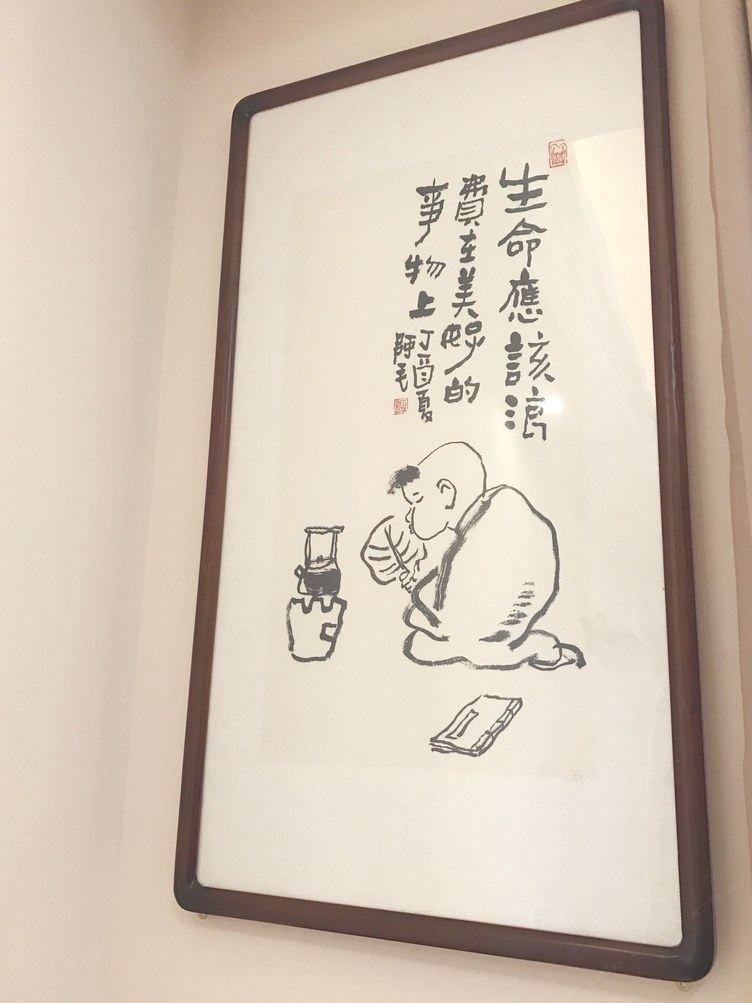 生命應該浪
費在美好的
事物上
丁酉夏
阿毛